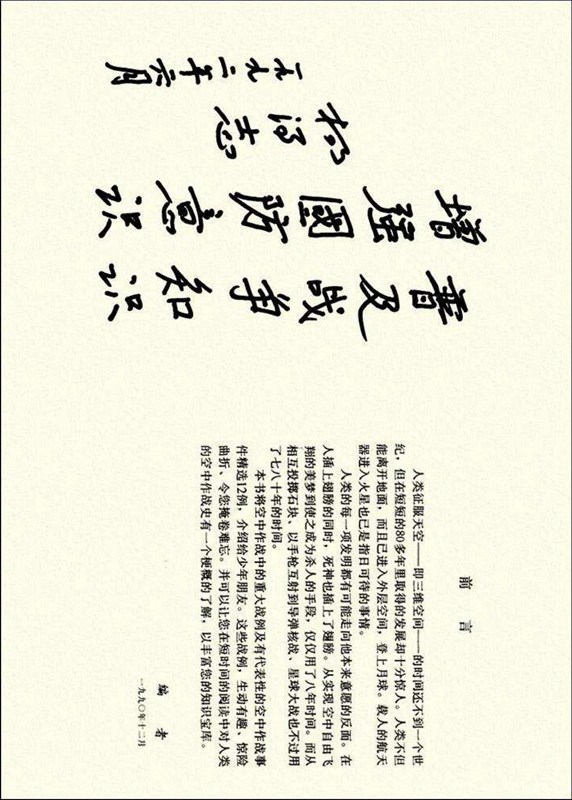 普及战争知识
增强國防意识
杨得志
一九九二年六月
前言
人类征服天空——即三维空间——的时间还不到一个世
纪，但在短短的80多年里取得的发展却十分惊人。人类不但
能离开地面，而且已进入外层空间，登上月球。载人的航天
器进入火星也已是指日可待的事情。
人类的每一项发明都有可能走向他本来意愿的反面。在
人插上翅膀的同时，死神也插上了翅膀。从实现空中自由飞
翔的美梦到使之成为杀人的手段，仅仅用了八年时间。而从
相互投掷石块、以手枪互射到导弹核战、星球大战也不过用
了七八十年的时间。
本书将空中作战中的重大战例及有代表性的空中作战事
件精选12例，介绍给少年朋友。这些战例，生动有趣、惊险
曲折、令您掩卷难忘。并可以让您在短时间的阅读中对人类
的空中作战史有一个梗概的了解，以丰富您的知识宝库。
编者
一九九〇年十二月